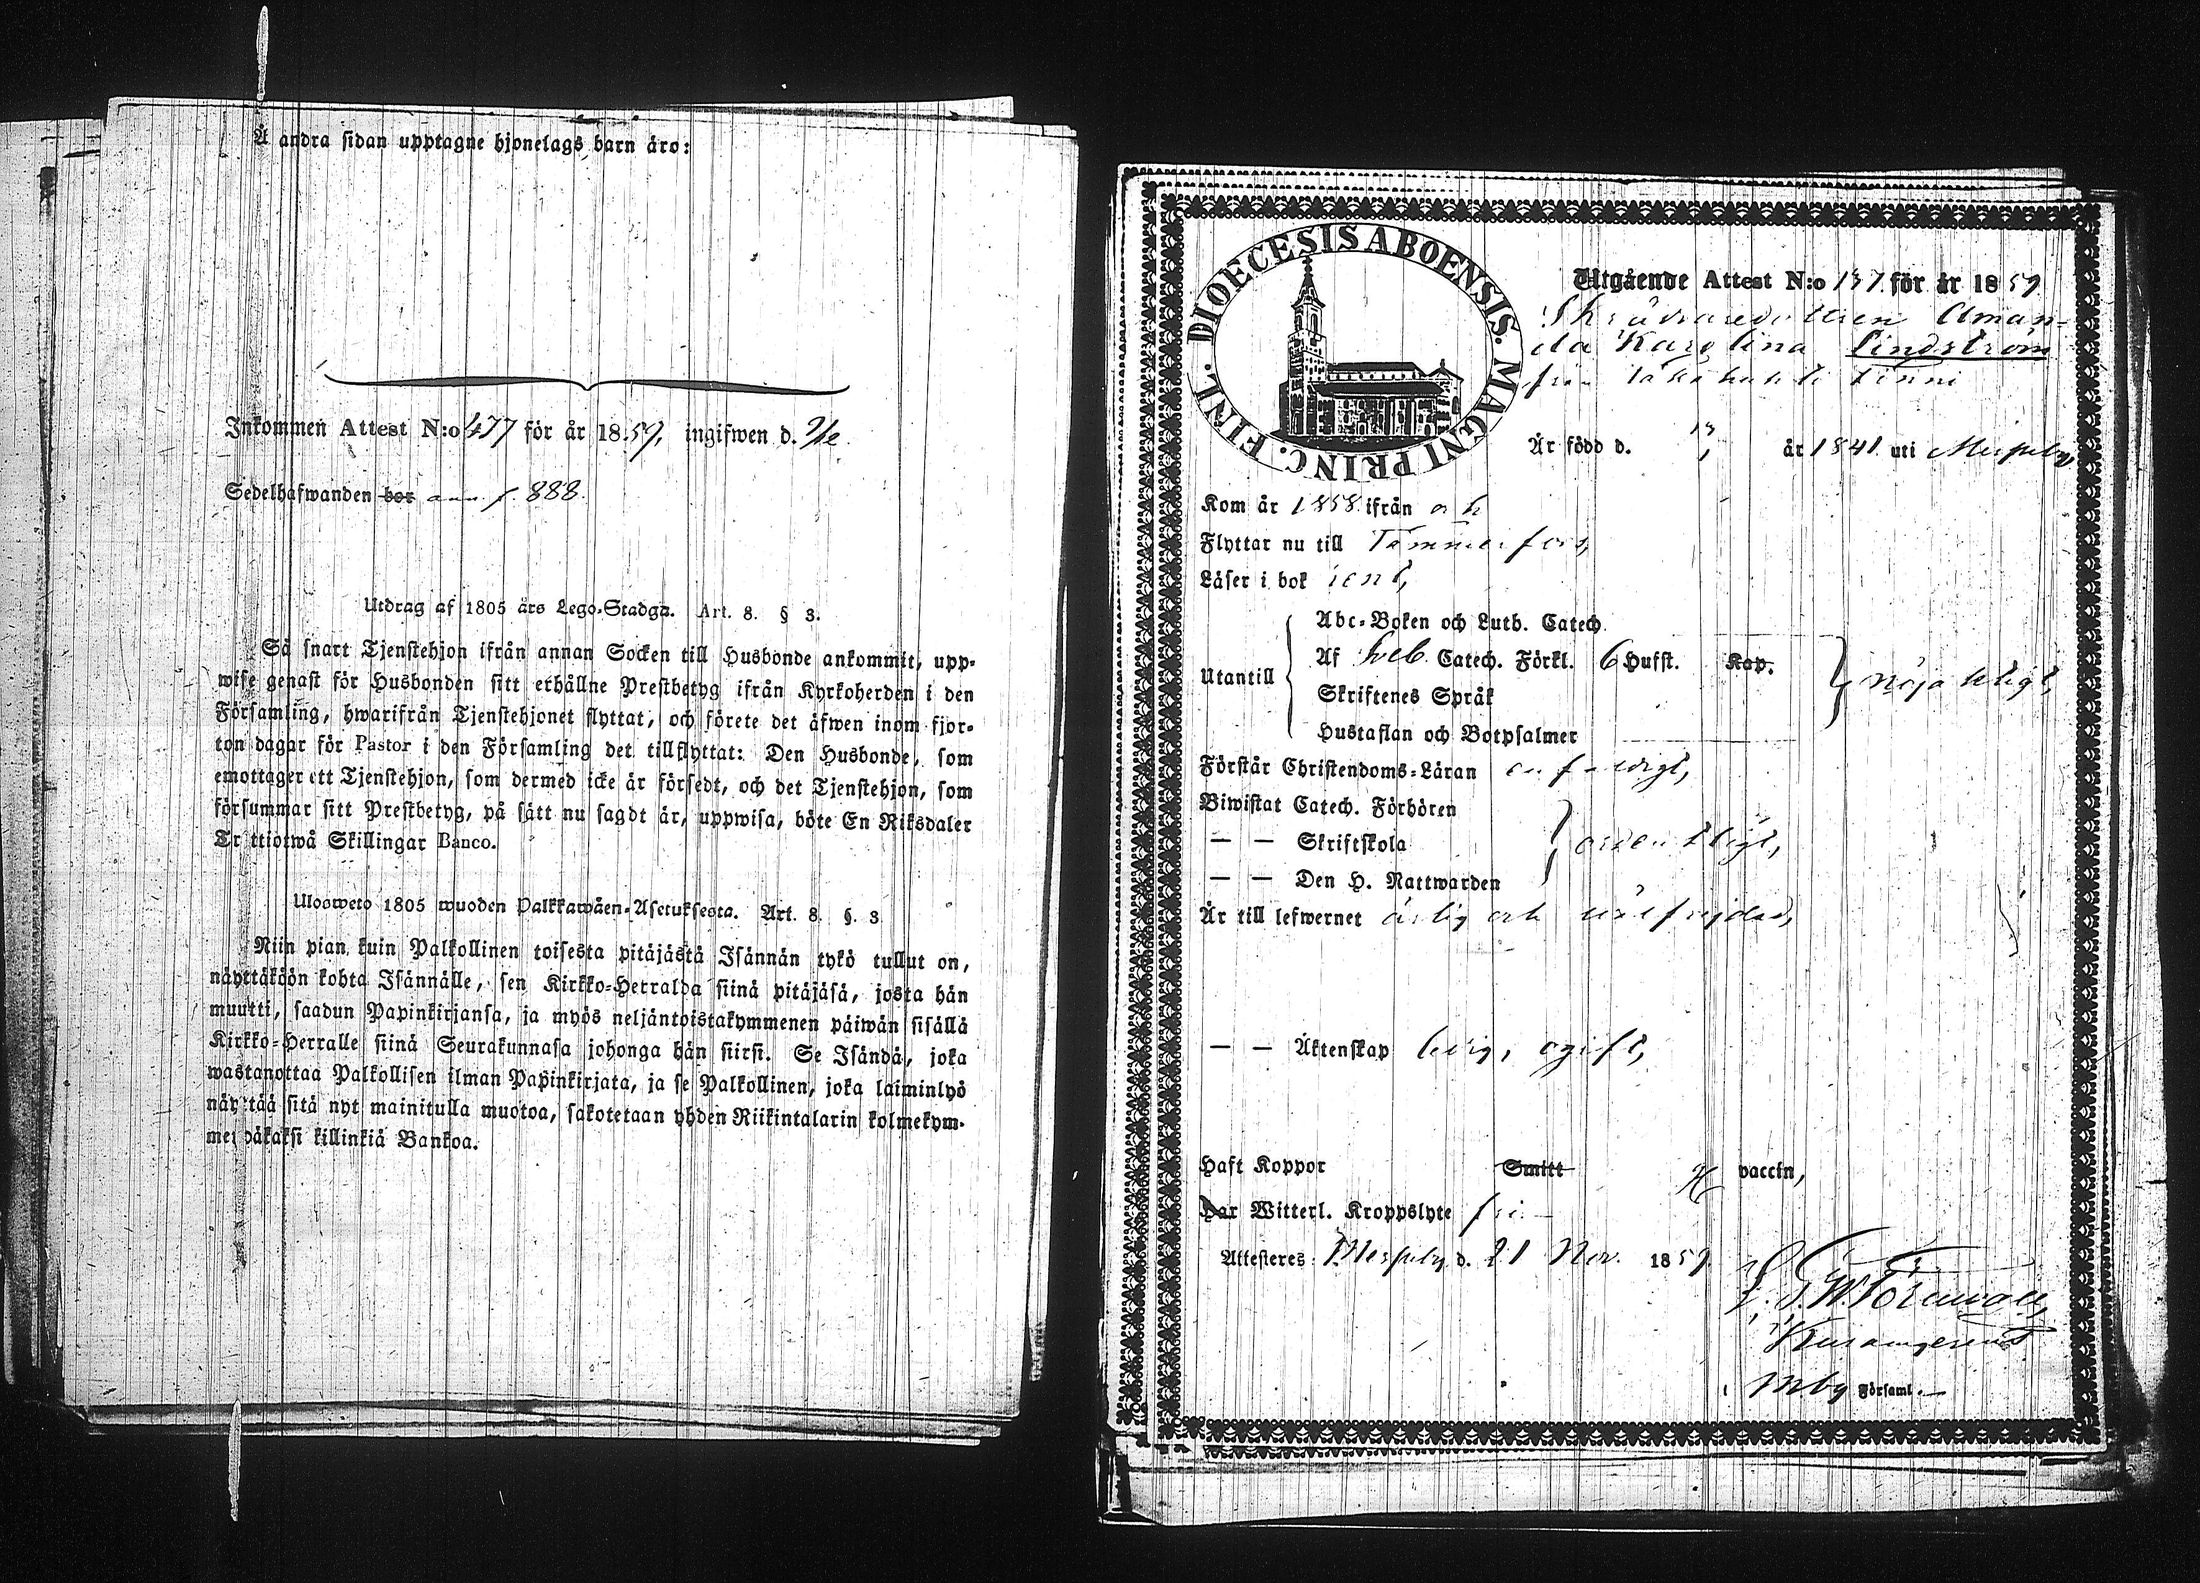 Å andra sidan upptagne hjonelags barn äro:
Inkommen Attest N:o 477 för år 1859, ingifwen d.
Sedelhafwanden bor ann f. 888.
Utdrag af 1805 års Lego-Stadga. Art. 8. § 3.
Så snart Tjenstehjon ifrån annan Socken till Husbonde ankommit, upp-
wise genast för Husbonden sitt erhållne Prestbetyg ifrån Kyrkoherden i den
Församling, hwarifrån Tjenstehjonet flyttat, och förete det äfwen inom fjor-
ton dagar för Pastor i den Församling det tillflyttat: Den Husbonde, som
emottager ett Tjenstehjon, som dermed icke är försedt, och det Tjenstehjon, som
försummar sitt Prestbetyg, på sätt nu sagdt är, uppwisa, böte En Riksdaler
Trettiotwå Skillingar Banco.
Ulosweto 1805 wuoden Palkkawäen-Asetuksesta. Art. 8. §. 3
Niin pian kuin Palkollinen toisesta pitäjästä Isännän tykö tullut on,
näyttäköön kohta Isännälle, sen Kirkko-Herralda siinä pitäjäsä, josta hän
muutti, saadun Papinkirjansa, ja myös neljäntoistakymmenen päiwän sisällä
Kirkko-Herralle siinä Seurakunnasa johonga hän siirsi. Se Isändä, joka
wastanottaa Palkollisen ilman Papinkirjata, ja se Palkollinen, joka laiminlyö
näyttää sitä nyt mainitulla muotoa, sakotetaan yhden Riikintalarin kolmekym-
mendäkaksi killinkiä Bankoa.
DIOECESIS ABOENSIS. MAGNI PRINC. FINL.
Utgående Attest N:o 137 för år 1859
Skräddaredottren Aman-
da Karolina Lindström
från Linni
Är född d. år 1841 uti Messuby
Kom år 1858 ifrån
Flyttar nu till Tammerfors,
Läser i bok rent,
Abc-Boken och Luth. Catech.
Utantill Af Sveb. Catech. Förkl. 6 Hufst. Kap. nöjaktligt,
Skriftenes Språk
Hustaflan och Botpsalmer
Förstår Christendoms-Läran enfaldigt,
Biwistat Catech. Förhören
— — Skriftskola ordentligt,
— — Den H. Nattwarden
Är till lefwernet ärlig och wälfrejdad,
— — Äktenskap ledig, ogift,
Haft Koppor Smitt vaccin,
Har Witterl. Kroppslyte fri —
Attesteres Messuby d. 21 Nov. 1859.
i Mby Församl. —